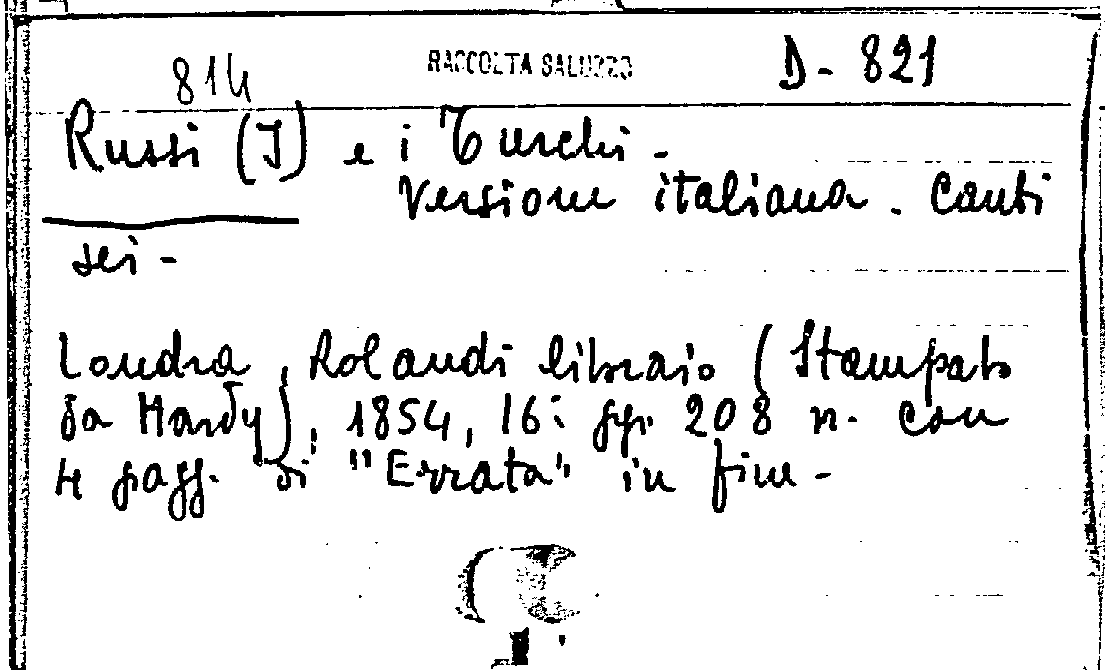 814 RACCOLTA SALUZZO D - 821
Russi (I) e i Turchi -
Versione italiana. Canti
sei -
Londra, Rolandi libraio (Stampato
da Hardy), 1854, 16: pp. 208 n. con
4 pagg. di "Errata" in fine -